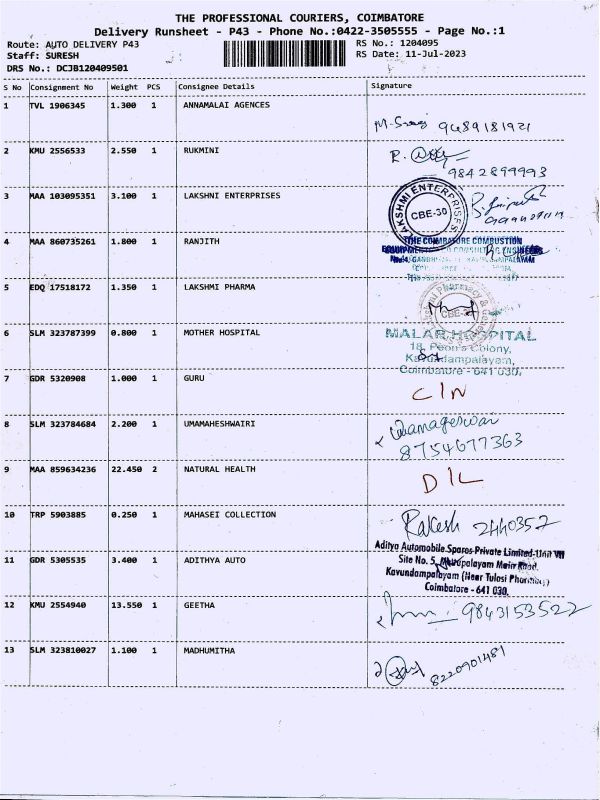 THE PROFESSIONAL COURIERS, COIMBATORE
Delivery Runsheet - P43 - Phone No.:0422-3505555 - Page No.:1
Route: AUTO DELIVERY P43
RS No.: 1204095
Staff: SURESH
RS Date: 11-Jul-2023
DRS No.: DCJB120409501
S No Consignment No Weight PCS Consignee Details Signature
1 TVL 1906345 1.300 1 ANNAMALAI AGENCES
9489181921
2 KMU 2556533 2.550 1 RUKMINI
R.
9842899993
3 MAA 103095351 3.100 1 LAKSHNI ENTERPRISES
LAKSHMI ENTERPRISES
CBE-30
4 MAA 860735261 1.800 1 RANJITH
THE COIMBATORE COMBUSTION
5 EDQ 17518172 1.350 1 LAKSHMI PHARMA
6 SLM 323787399 0.800 1 MOTHER HOSPITAL
MALAR HOSPITAL
18, Colony,
Kavundampalayam,
Coimbatore - 641 030.
7 GDR 5320908 1.000 1 GURU
C/N
8 SLM 323784684 2.200 1 UMAMAHESHWAIRI
8754677363
9 MAA 859634236 22.450 2 NATURAL HEALTH
D/L
10 TRP 5903885 0.250 1 MAHASEI COLLECTION
Rakesh 2440352
11 GDR 5305535 3.400 1 ADITHYA AUTO
Aditya Automobile Spares Private Limited-Unit VII
Site No. 5, Main Road,
Kavundampalayam (Near Tulasi Pharmacy)
Coimbatore - 641 030.
12 KMU 2554940 13.550 1 GEETHA
9843153522
13 SLM 323810027 1.100 1 MADHUMITHA
8220901481